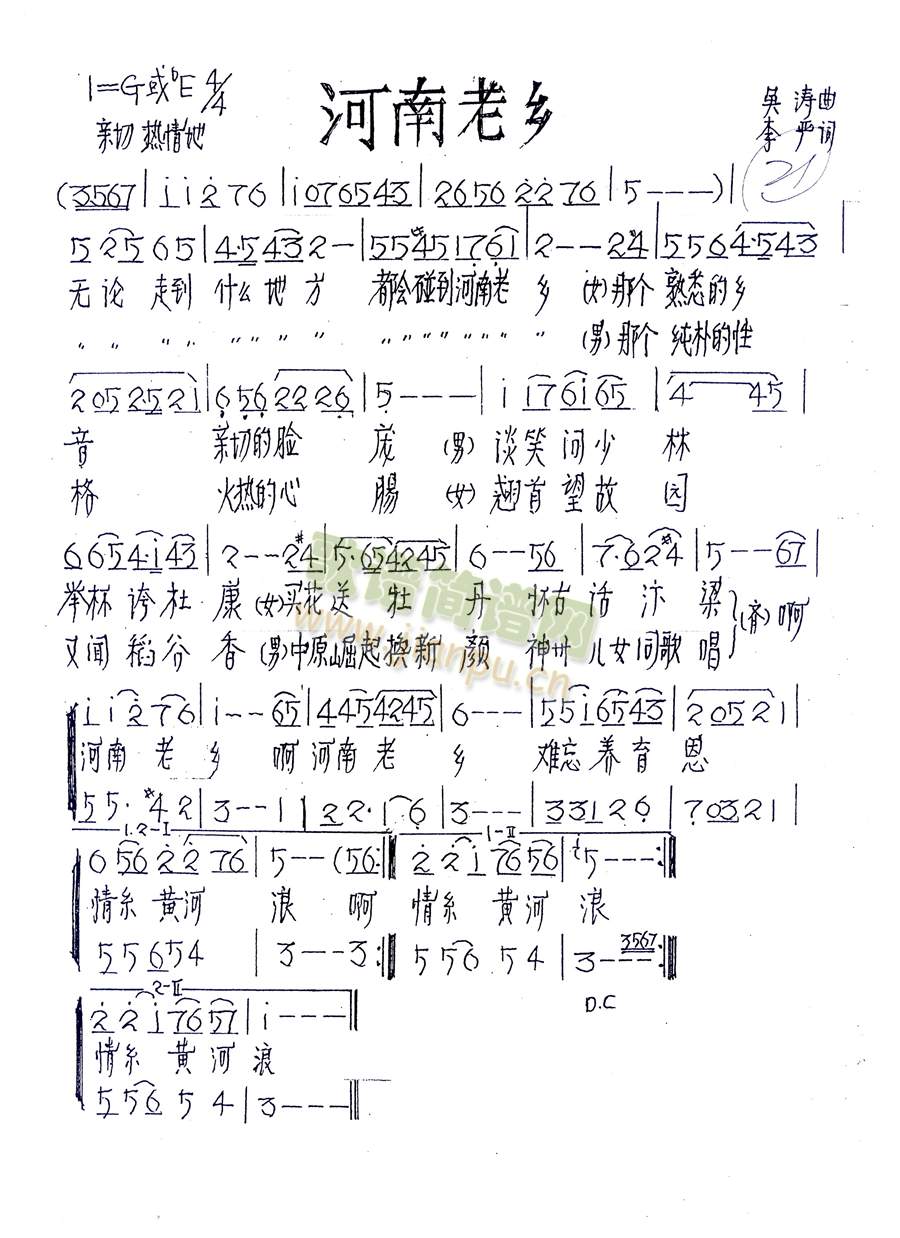 1=G或♭E 4/4
河南老乡
吴涛曲
亲切 热情地
李严词
21
(3567|i i 2 7 6|i 0 7 6 5 4 3|2 6 5 6 2 2 7 6|5 - - -)|
5 2 5 6 5|4·5 4 3 2 -|5 5 #4 5 1 7 6 1|2 - - 2 #4|5 5 6 4·5 4 3|
无论 走到 什么地方 都会碰到河南老 乡 (女)那个 熟悉的乡
〃 〃 〃 〃 〃 〃 〃 〃 〃 〃 〃 〃 〃 〃 〃 (男)那个 纯朴的性
2 0 5 2·5 2 1|6·5 6 2 2 2 6|5 - - -|i i 7 6 i 6 5|4 4 5|
音 亲切的脸 庞 (男) 谈笑问少 林
格 火热的心 腸 (女) 翘首望故 园
6 6 5 4·i 4 3|2 - - 2 #4|5·6 5 4 2 4 5|6 - - 5 6|7·6 2 #4|5 - - 6 7|
举杯 谤杜 康 (女)买花 送 牡 丹 怀古 话 汴 梁 (齐)啊
又闻 稻谷 香 (男)中原崛起换新 颜 神州 儿女同歌唱
i i 2 7 6|i - - 6 5|4 4 5 4 2 4 5|6 - - -|5 5 i 6 5 4 3|2 0 5 2 1|
河南 老 乡 啊 河南 老 乡 难忘 养育 恩
5 5· #4 2|3 - - 1|2 2· 1 6|3 - - -|3 3 1 2 6|7 0 3 2 1|
1.2-I 1-II
6 5 6 2 2 7 6|5 - - (5 6:‖2 2 i 7 6 5 6|5 - - -:‖
情系 黄河 浪 啊 情系 黄河 浪
5 5 6 5 4 |3 - - 3:‖5 5 6 5 4|3 - - - 3567:‖
D.C
2-II
2 2 i 7 6 5 7|i - - -‖
情系 黄 河 浪
5 5 6 5 4|3 - - -‖
歌谱简谱网
www.jianpu.cn